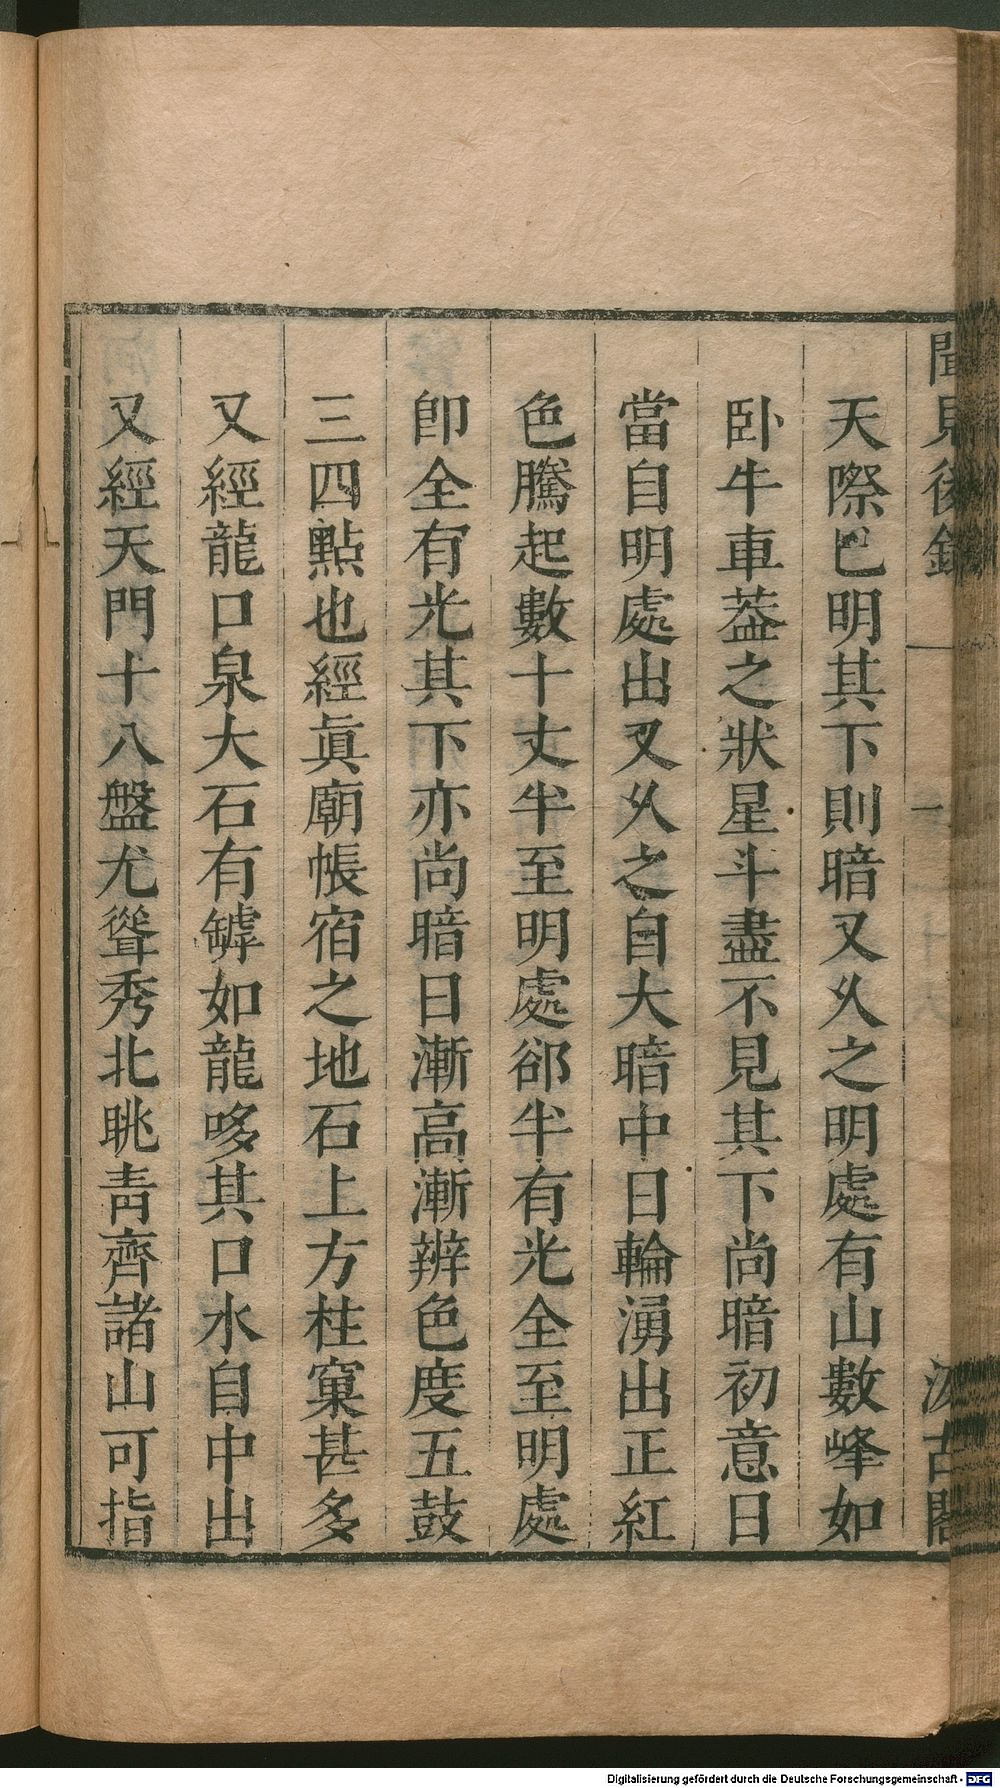 聞見後錄
汲古閣
天際已明其下則暗又乆之明處有山數峰如
卧牛車葢之狀星斗盡不見其下尚暗初意日
當自明處出又乆之自大暗中日輪湧出正紅
色騰起數十丈半至明處郤半有光全至明處
卽全有光其下亦尚暗日漸高漸辨色度五鼓
三四點也經眞廟帳宿之地石上方柱窠甚多
又經龍口泉大石有罅如龍哆其口水自中出
又經天門十八盤尤聳秀北眺靑齊諸山可指
Digitalisierung gefördert durch die Deutsche Forschungsgemeinschaft - DFG